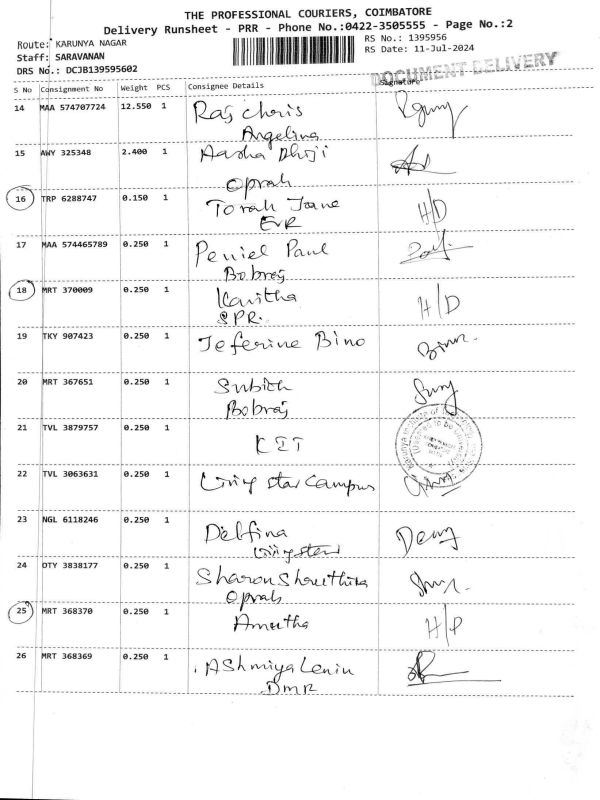 THE PROFESSIONAL COURIERS, COIMBATORE
Delivery Runsheet - PRR - Phone No.:0422-3505555 - Page No.:2
Route: KARUNYA NAGAR
RS No.: 1395956
Staff: SARAVANAN
RS Date: 11-Jul-2024
DRS No.: DCJB139595602
DOCUMENT DELIVERY
S No Consignment No Weight PCS Consignee Details Signature
14 MAA 574707724 12.550 1 Raj Chris
Angelina
15 AWY 325348 2.400 1 Aasha Dhiji
Oprah
16 TRP 6288747 0.150 1 Torah Jane H/D
EVR
17 MAA 574465789 0.250 1 Peniel Paul
Bobraj
18 MRT 370009 0.250 1 Kavitha H/D
SPR.
19 TKY 907423 0.250 1 Jeferine Bino
20 MRT 367651 0.250 1 Subith
Bobraj
21 TVL 3879757 0.250 1
22 TVL 3063631 0.250 1 Living star Campus
23 NGL 6118246 0.250 1 Delfina
Livingstar
24 OTY 3838177 0.250 1 Sharon
Oprah
25 MRT 368370 0.250 1 H/D
26 MRT 368369 0.250 1 Ashmiya Lenin
DMR